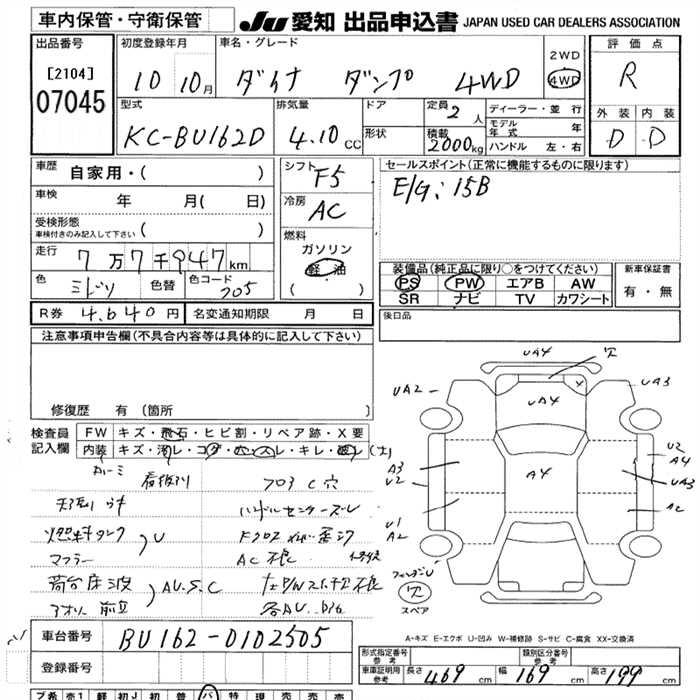 車内保管・守衛保管 JU 愛知 出品申込書 JAPAN USED CAR DEALERS ASSOCIATION
出品番号 初度登録年月 車名・グレード 2WD 評価点
[2104] 10 10月 ダイナ ダンプ 4WD 4WD R
07045
型式 排気量 ドア 定員 2人 ディーラー・並行 外装 内装
モデル年式 年
KC-BU162D 4.10CC 形状 積載 2000kg ハンドル 左・右 D D
車歴 自家用・( ) シフト F5 セールスポイント(正常に機能するものに限ります)
車検 年 月( 日) 冷房 AC E/G:15B
受検形態 ( )
車検付きのみ記入して下さい
燃料
走行 7万7千947km ガソリン
軽油
( )
色 ミドリ 色替 色コード 705
装備品(純正品に限り○をつけてください) 新車保証書
PS PW エアB AW 有・無
SR ナビ TV カワシート
R券 4,640円 名変通知期限 月 日 後日品
注意事項申告欄(不具合内容等は具体的に記入して下さい)
修復歴 有(箇所 )
検査員 FW キズ・飛石・ヒビ割・リペア跡・X要
記入欄 内装 キズ・汚レ・コゲ・穴・スレ・キレ・破レ(大)
フロアC穴
ハンドルセンターズレ
燃料タンク U
マフラー AC不良
荷台床波 AU.S.C
アオリ
UA4 穴
UA2 UA4 UA3
A3 U2 A4 U2 A4 UA3
U1 A2 A2
穴
スペア
A-キズ E-エクボ U-凹み W-補修跡 S-サビ C-腐食 XX-交換済
車台番号 BU162-0102505
登録番号
形式指定番号 参考 類別区分番号 参考
車庫証明用 参考 長さ 469cm 幅 169cm 高さ 199cm